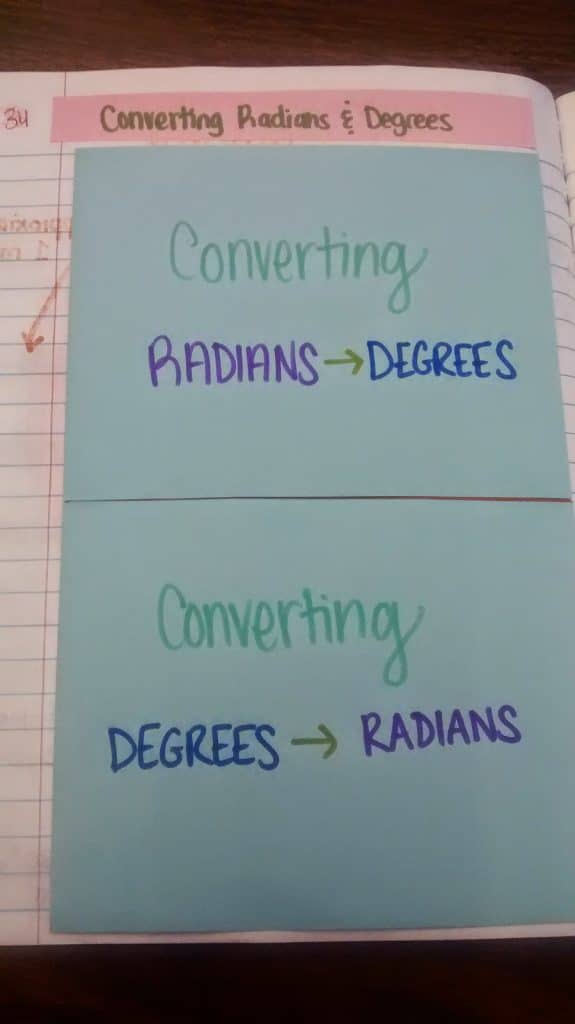 34
Converting Radians & Degrees
Converting
RADIANS → DEGREES
Converting
DEGREES → RADIANS